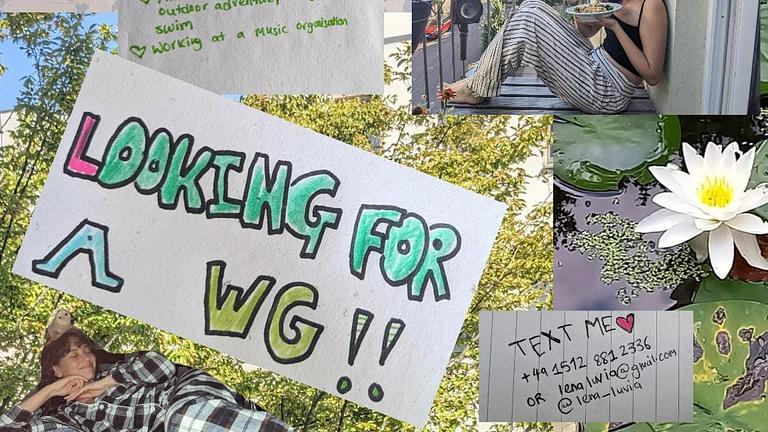 outdoor adventure,
swim
♡ Working at a Music organisation
LOOKING FOR
A WG!!
TEXT ME♥
+49 1512 8812336
OR lena.luvia@gmail.com
@lena_luvia